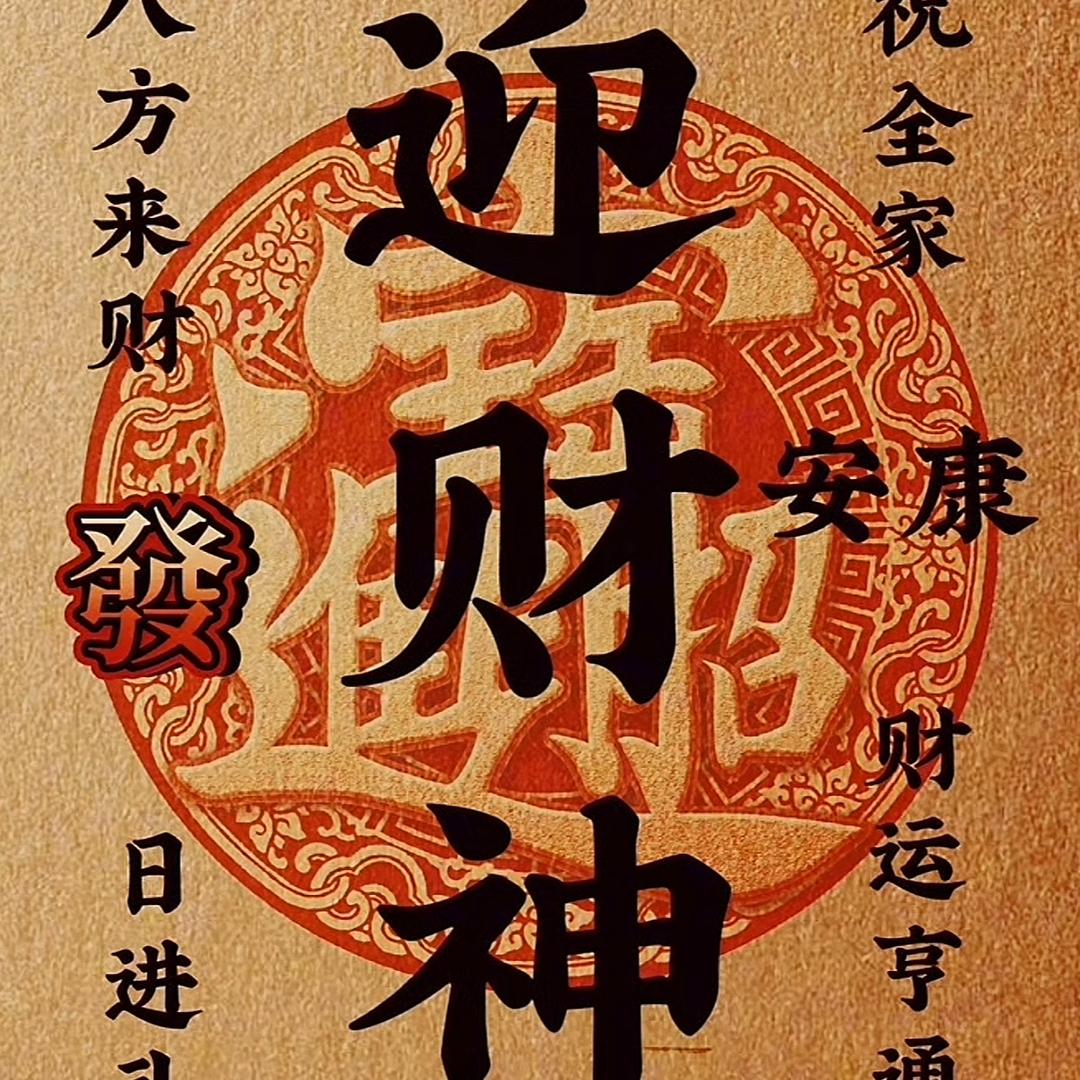 祝全家
安康
财运亨通
迎财神
八方来财
發
日进
招財進寶